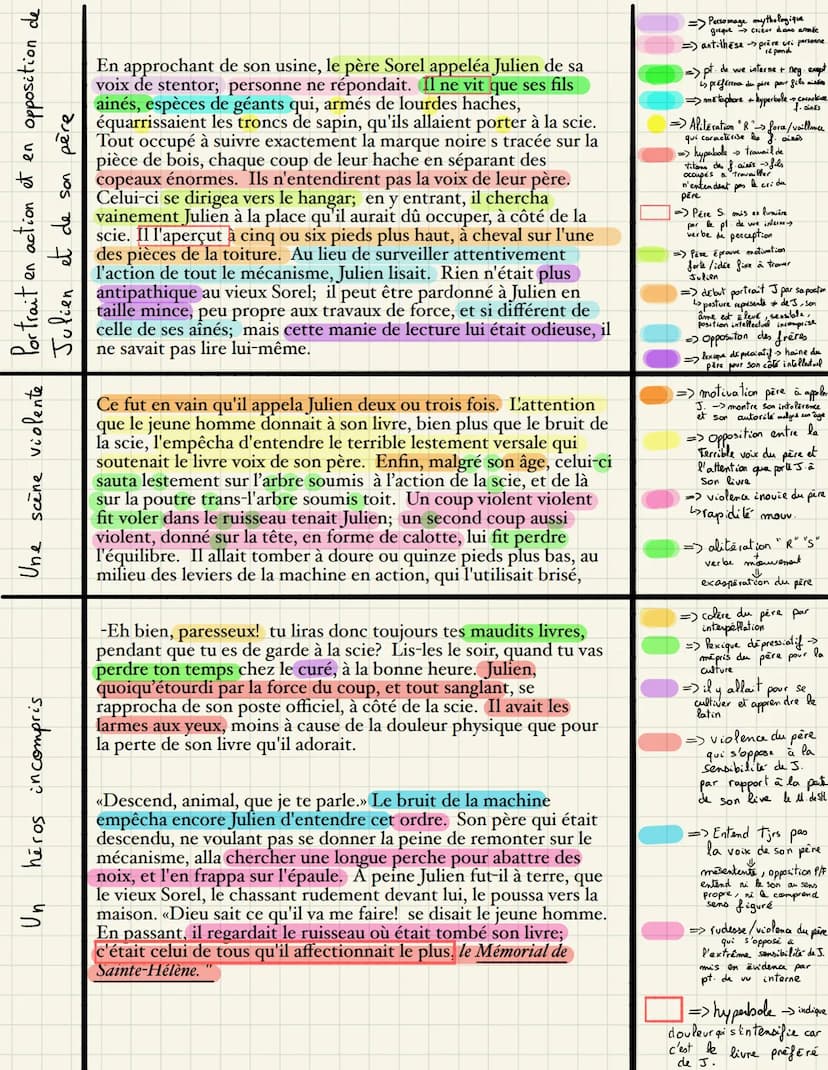 Portrait en action et en opposition de
Julien et de son père
En approchant de son usine, le père Sorel appeléa Julien de sa
voix de stentor; personne ne répondait. Il ne vit que ses fils
ainés, espèces de géants qui, armés de lourdes haches,
équarrissaient les troncs de sapin, qu'ils allaient porter à la scie.
Tout occupé à suivre exactement la marque noire s tracée sur la
pièce de bois, chaque coup de leur hache en séparant des
copeaux énormes. Ils n'entendirent pas la voix de leur père.
Celui-ci se dirigea vers le hangar; en y entrant, il chercha
vainement Julien à la place qu'il aurait dû occuper, à côté de la
scie. Il l'aperçut à cinq ou six pieds plus haut, à cheval sur l'une
des pièces de la toiture. Au lieu de surveiller attentivement
l'action de tout le mécanisme, Julien lisait. Rien n'était plus
antipathique au vieux Sorel; il peut être pardonné à Julien en
taille mince, peu propre aux travaux de force, et si différent de
celle de ses aînés; mais cette manie de lecture lui était odieuse, il
ne savait pas lire lui-même.
=> Personnage mythologique
grecque -> crieur dans armée
=> antithèse -> père cri personne
répond
=> pt. de vue interne + neg. except
↳ préférence du père pour fils ainés
=> métaphore + hyperbole ->
f. ainés
=> Alitération "R" -> force/vaillance
qui caractérise les f. ainés
=> hyperbole -> travail de
titans des f. ainés -> fils
occupés à travailler
n'entendent pas le cri du
père
=> Père S. mis en lumière
par le pt de vue interne ->
verbe de perception
=> Père éprouve motivation
forte/idée fixe à trouver
Julien
=> début portrait J par sa posture
↳ posture représente + de J, son
âme est élevé, sensible,
position intellectuel incomprise
=> opposition des frères
=> lexique dépréciatif -> haine du
père pour son côté intellectuel
Une scène violente
Ce fut en vain qu'il appela Julien deux ou trois fois. L'attention
que le jeune homme donnait à son livre, bien plus que le bruit de
la scie, l'empêcha d'entendre le terrible lestement versale qui
soutenait le livre voix de son père. Enfin, malgré son âge, celui-ci
sauta lestement sur l'arbre soumis à l'action de la scie, et de là
sur la poutre trans-l'arbre soumis toit. Un coup violent violent
fit voler dans le ruisseau tenait Julien; un second coup aussi
violent, donné sur la tête, en forme de calotte, lui fit perdre
l'équilibre. Il allait tomber à doure ou quinze pieds plus bas, au
milieu des leviers de la machine en action, qui l'utilisait brisé,
=> motivation père à appeler
J. -> montre son intolérence
et son autorité malgré son âge
=> opposition entre la
Terrible voix du père et
l'attention que porte J. à
son livre
=> violence inouïe du père
↳ rapidité mouv.
=> alitération "R" "S"
+
verbe mouvement
⇓
exaspération du père
Un héros incompris
-Eh bien, paresseux! tu liras donc toujours tes maudits livres,
pendant que tu es de garde à la scie? Lis-les le soir, quand tu vas
perdre ton temps chez le curé, à la bonne heure. Julien,
quoiqu'étourdi par la force du coup, et tout sanglant, se
rapprocha de son poste officiel, à côté de la scie. Il avait les
larmes aux yeux, moins à cause de la douleur physique que pour
la perte de son livre qu'il adorait.
«Descend, animal, que je te parle.» Le bruit de la machine
empêcha encore Julien d'entendre cet ordre. Son père qui était
descendu, ne voulant pas se donner la peine de remonter sur le
mécanisme, alla chercher une longue perche pour abattre des
noix, et l'en frappa sur l'épaule. À peine Julien fut-il à terre, que
le vieux Sorel, le chassant rudement devant lui, le poussa vers la
maison. «Dieu sait ce qu'il va me faire! se disait le jeune homme.
En passant, il regardait le ruisseau où était tombé son livre;
c'était celui de tous qu'il affectionnait le plus, le Mémorial de
Sainte-Hélène. "
=> colère du père par
interpellation
=> lexique dépressiatif ->
mépris du père pour la
culture
=> il y allait pour se
cultiver et apprendre le
latin
=> violence du père
qui s'oppose à la
sensibilité de J.
par rapport à la perte
de son livre le M. de SH
=> Entend tjrs pas
la voix de son père
⇓
mésentente, opposition P/F
entend ni le son au sens
propre, ni le comprend
sens figuré
=> rudesse/violence du père
qui s'oppose à
l'extrême sensibilité de J.
mis en évidence par
pt. de vu interne
=> hyperbole -> indique
douleur qui s'intensifie car
c'est le livre préféré
de J.